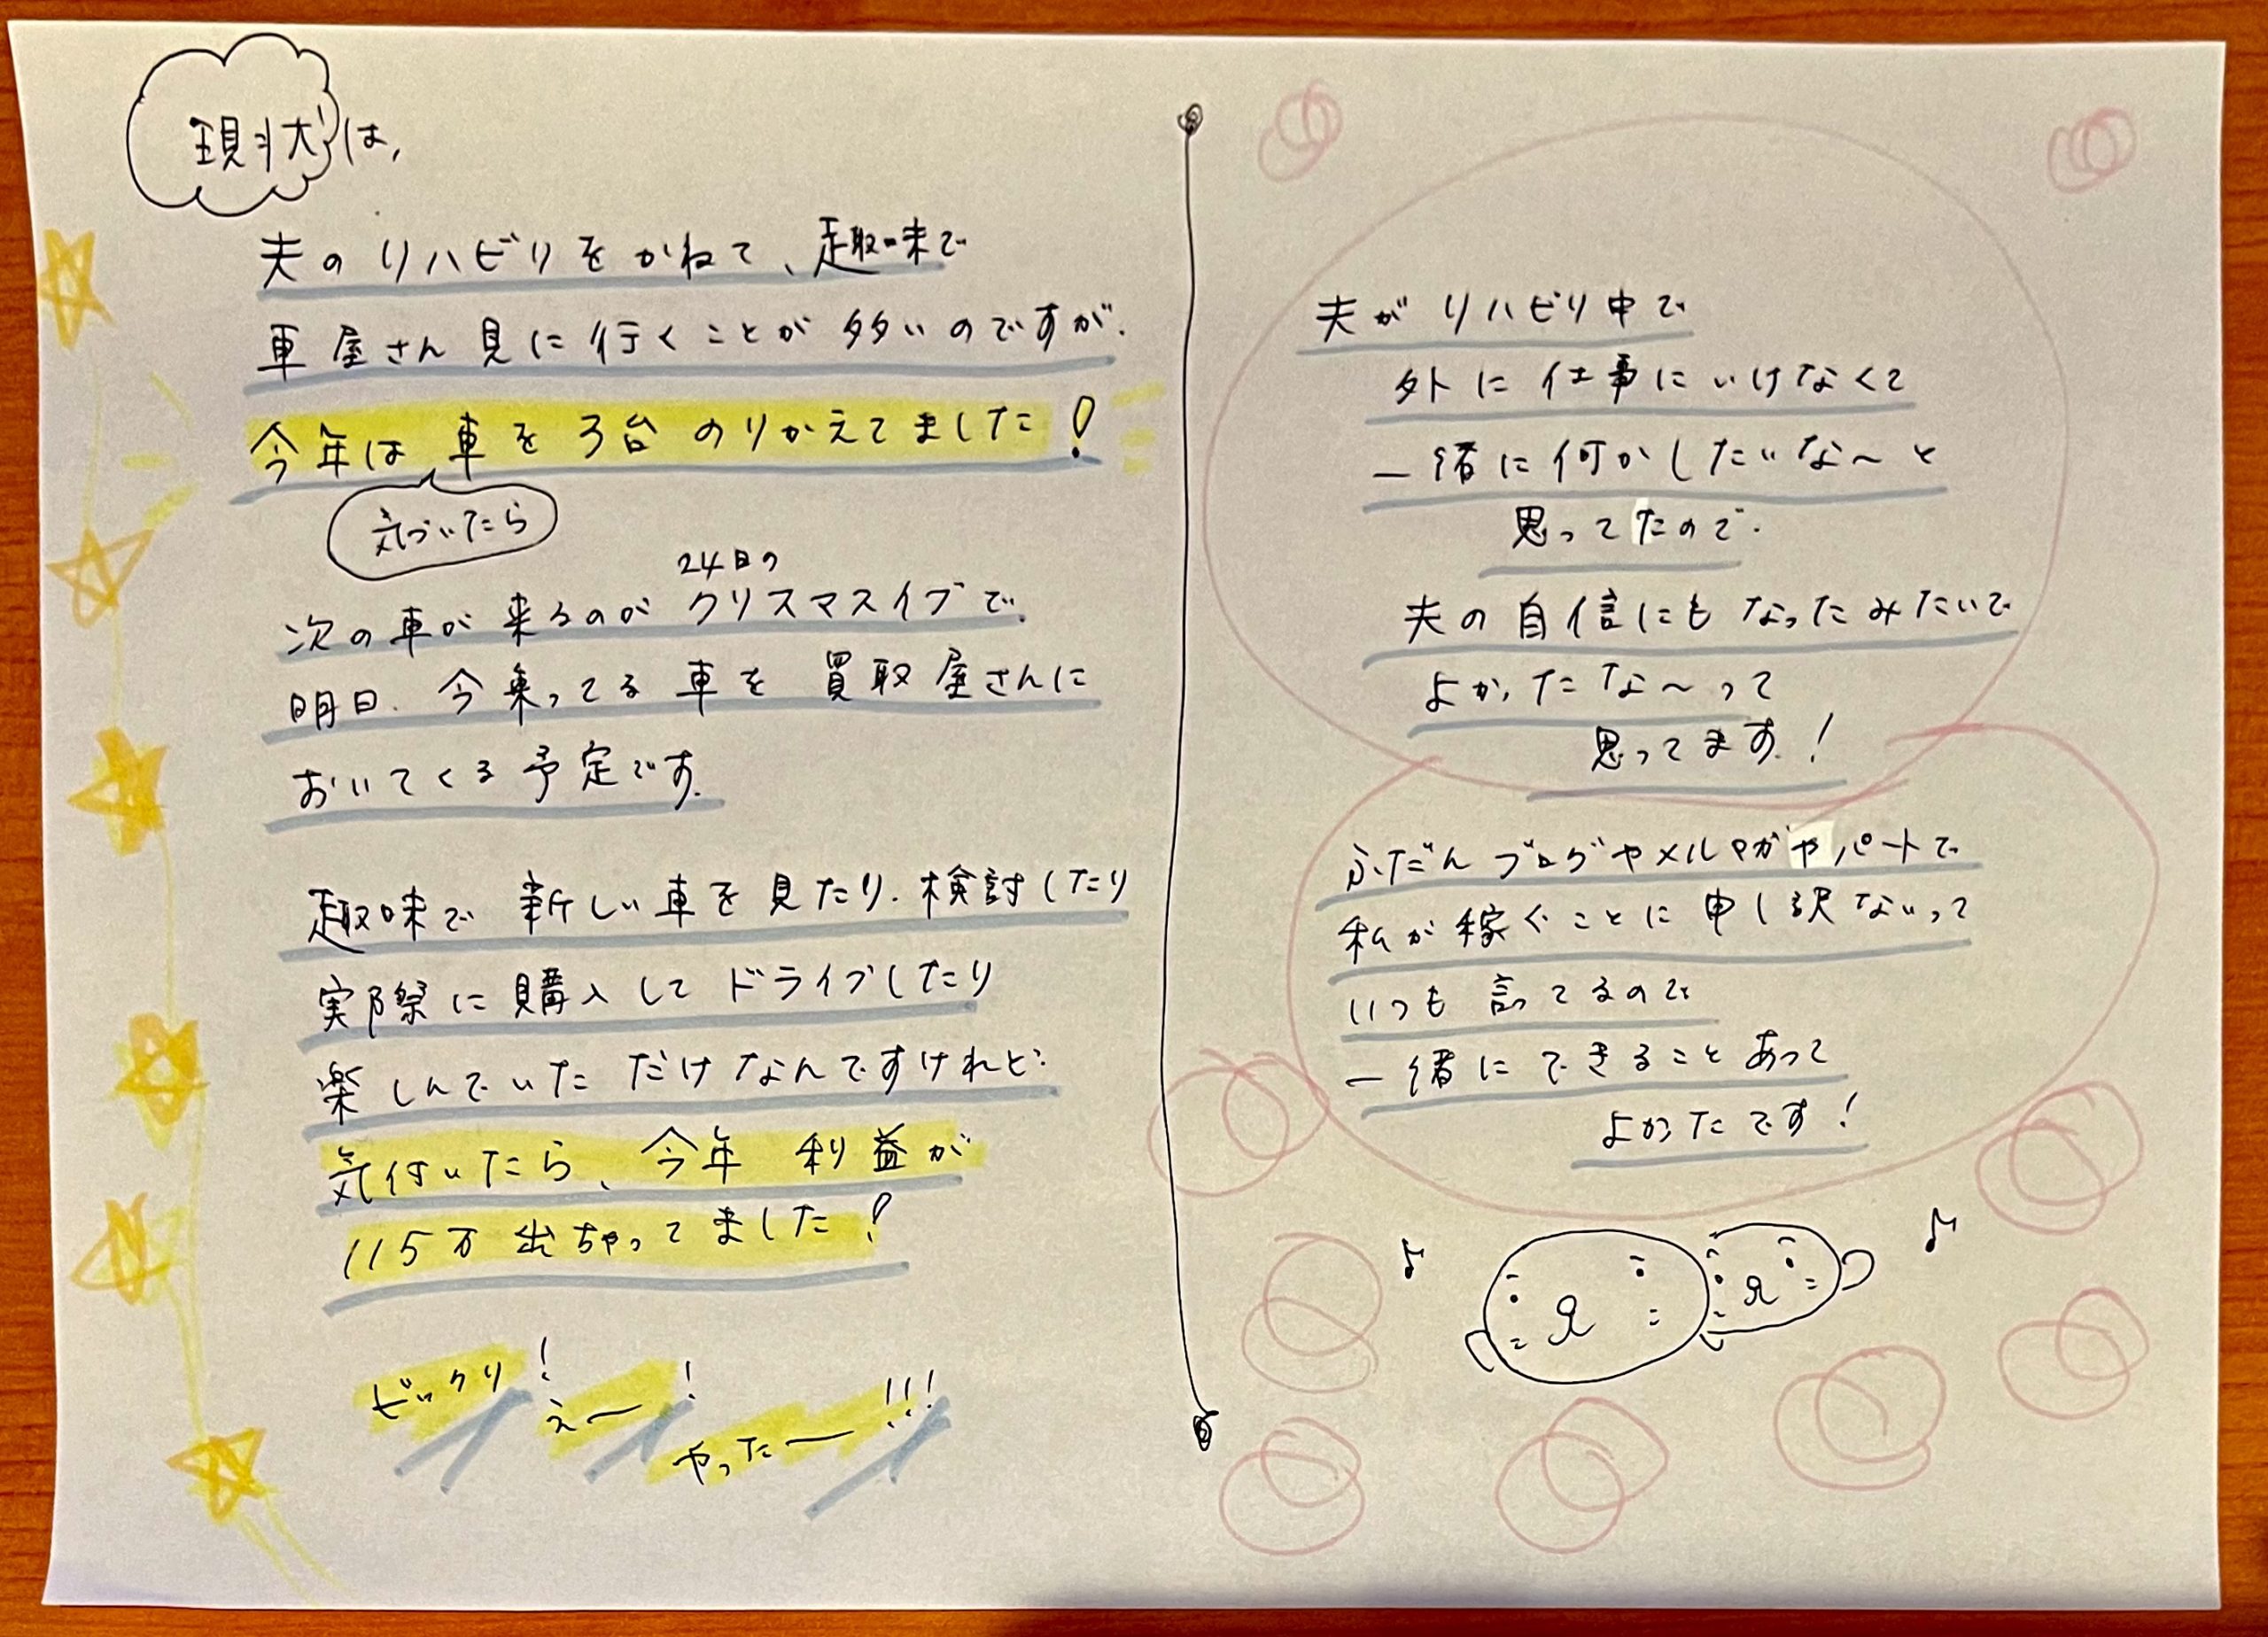 現状は、
夫のリハビリをかねて、趣味で
車屋さん見に行くことが多いのですが、
今年は車を3台のりかえてました!
気づいたら
24日の
次の車が来るのがクリスマスイブで、
明日、今乗ってる車を買取屋さんに
おいてくる予定です。
趣味で新しい車を見たり、検討したり
実際に購入してドライブしたり
楽しんでいただけなんですけれど、
気付いたら、今年利益が
115万出ちゃってました!
ビックリ!
えー!
やったー!!!
夫がリハビリ中で
外に仕事にいけなくて
一緒に何かしたいな〜と
思ってたので、
夫の自信にもなったみたいで
よかったな〜って
思ってます!
ふだんブログやメルマガやパートで
私が稼ぐことに申し訳ないって
いつも言ってるので
一緒にできることあって
よかったです!